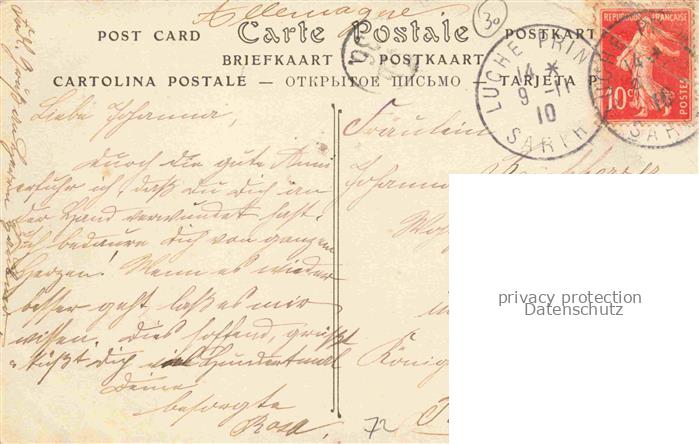 Allemagne
30
POST CARD Carte Postale POSTKART
BRIEFKAART — POSTKAART
CARTOLINA POSTALE — ОТКРЫТОЕ ПИСЬМО — TARJETA P
REPUBLIQUE FRANÇAISE
10c
POSTES
LUCHE PRIN
14 *
9 - 11
10
SARTH
14 *
10
SAR
Liebe Johanna,
durch die gute Anni
erfuhr ich, daß Du Dich an
der Hand verwundet hast.
Ich bedaure Dich von ganzem
Herzen! Wenn es wieder
besser geht, laß es mir
wissen. Dies hoffend, grüßt
küßt Dich viel Hundertmal
Deine
besorgte
Rosa.
Fräulein
Johanna
König
72
privacy protection
Datenschutz